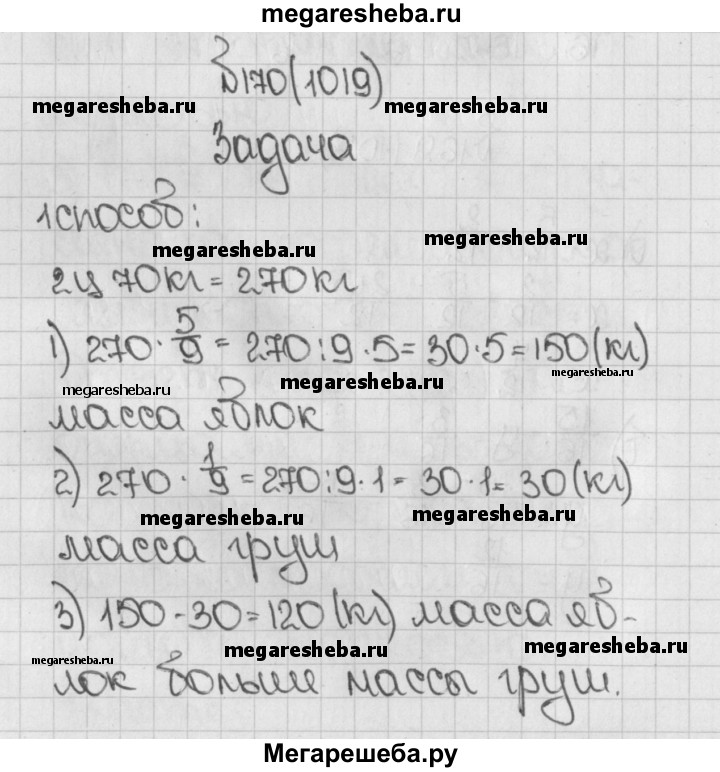 megaresheba.ru
№170(1019)
megaresheba.ru megaresheba.ru
Задача
1 способ:
megaresheba.ru megaresheba.ru
2ц 70кг = 270кг
1) 270 · 5/9 = 270 : 9 · 5 = 30 · 5 = 150 (кг)
megaresheba.ru megaresheba.ru megaresheba.ru
масса яблок
2) 270 · 1/9 = 270 : 9 · 1 = 30 · 1 = 30 (кг)
megaresheba.ru megaresheba.ru
масса груш
3) 150 - 30 = 120 (кг) масса яб-
megaresheba.ru megaresheba.ru megaresheba.ru
лок больше массы груш.
Мегарешеба.ру